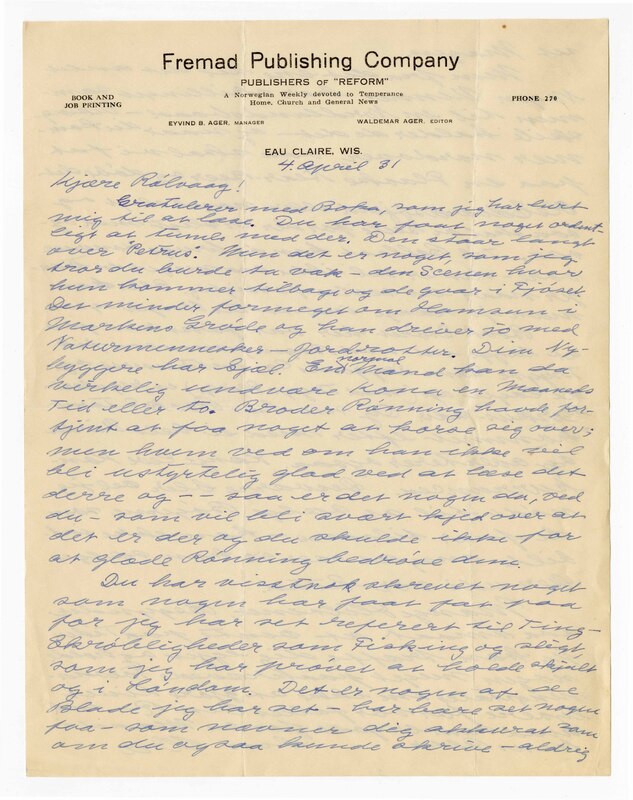 Fremad Publishing Company
PUBLISHERS OF "REFORM"
A Norwegian Weekly devoted to Temperance
Home, Church and General News
BOOK AND
JOB PRINTING
PHONE 270
EYVIND B. AGER, MANAGER
WALDEMAR AGER, EDITOR
EAU CLAIRE, WIS.
4. April 31
Kjære Rølvaag!
Gratulerer med Boka, som jeg har lurt
mig til at læse. Du har faat noget ordent-
ligt at tumle med der. Den staar langt
over "Petrus". Men det er noget, som jeg
tror du burde ta væk – den Scenen hvor
hun kommer tilbage og de gaar i Fjøset.
Det minder formeget om Hamsun i
Markens Grøde og han driver jo med
Naturmennesker – Jordrotter. Dine Ny-
byggere har Sjæl. En normal Mand kan da
virkelig undvære Kona en Maaneds
Tid eller to. Broder Rønning havde for-
tjent at faa noget at korse sig over;
men hvem ved om han ikke vil
bli ustyrtelig glad ved at læse det
derre og –– saa er det nogen da, ved
du – som vil bli svært kjed over at
det er der og du skulde ikke for
at glæde Rønning bedrøve dem.
Du har visstnok skrevet noget
som nogen har faat fat paa
for jeg har set referert til Ting –
Skrøbeligheder som Fisking og sligt,
som jeg har prøvet at holde skjult
og i Løndom. Det er nogen af de
Blade jeg har set – har bare set nogen
faa – som nævner dig akkurat som
om du ogsaa kunde skrive – aldrig